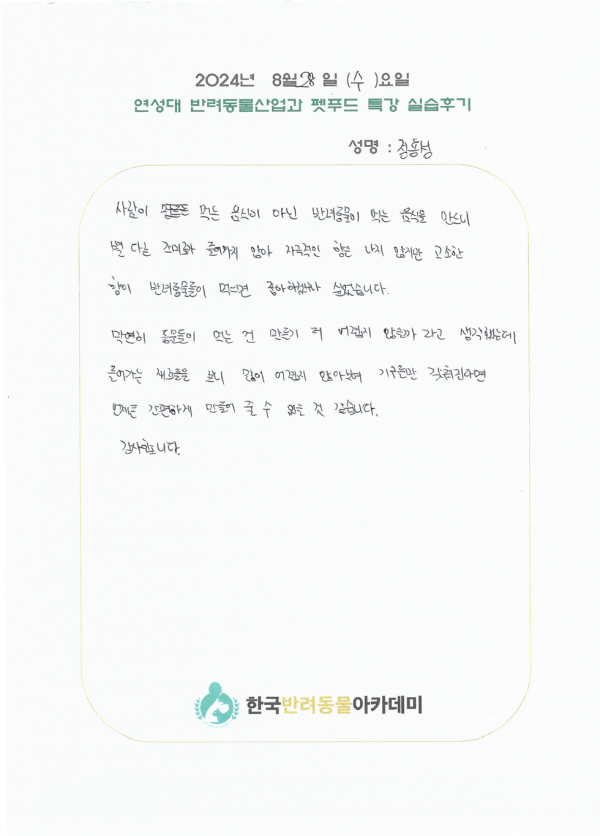 2024년 8월 28 일 (수)요일
연성대 반려동물산업과 펫푸드 특강 실습후기
성명 :
사람이 먹는 음식이 아닌 반려동물이 먹는 음식을 만드니
별 다른 조미료가 들어가지 않아 자극적인 향은 나지 않지만 고소한
향이 반려동물들이 먹으면 좋아하겠다 싶었습니다.
막연히 동물들이 먹는 건 만들기 더 어렵지 않을까 라고 생각했는데
들어가는 재료들을 보니 많이 어렵지 않아보여 기구들만 갖춰진다면
언제든 간편하게 만들어 줄 수 있는 것 같습니다.
감사합니다.
한국반려동물아카데미